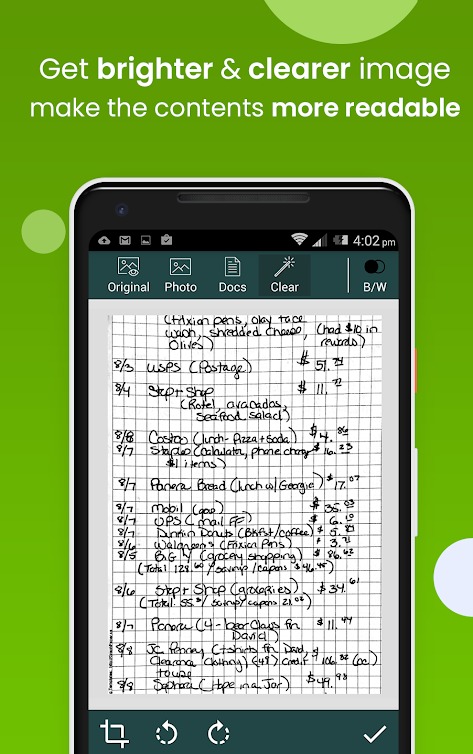 Get brighter & clearer image
make the contents more readable
4:02 pm
Original Photo Docs Clear B/W
(Frixion pens, olay face
wash, shredded cheese, (had $10 in
Olives) rewards)
8/3 USPS (Postage) $ 51.74
8/4 Stop + Shop $ 11.77
(Rotel, avacados,
Seafood Salad)
8/8 Costco (lunch - Pizza + Soda) $ 4.86
8/7 Staples (Calculator, phone charger $ 16.23
$1 items)
8/7 Panera Bread (lunch w/ Georgia) $ 17.07
8/7 Mobil (gas) $ 35.03
8/7 UPS (mail FF) $ 6.10
8/7 Dunkin Donuts (Bkfst/coffee) $ 5.81
8/6 Walgreens (Frixion Pens) $ 3.71
8/5 Big Y (grocery shopping) $ 86.62
(Total 128.60 / savings / capons $46.45)
8/6 Stop + Shop (groceries) $ 34.61
(Total: 55. / savings / capons 21.02)
8/7 Panera (4 - bear Claws for $ 11.44
David)
8/8 JC Penney (tshirts for David,
Clearance Clothing) (-48) credit 106.32 (cc)
8/8 Sephora (Hope in a Jar) $49.98